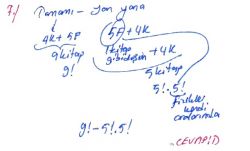 7/ Tamamı - Yan yana
4K + 5F
9 kitap
9!
5F + 4K
1 kitap gibi düşün + 4K
5 kitap
5! . 5!
Fizikler kendi aralarında
9! - 5! . 5!
CEVAP: D